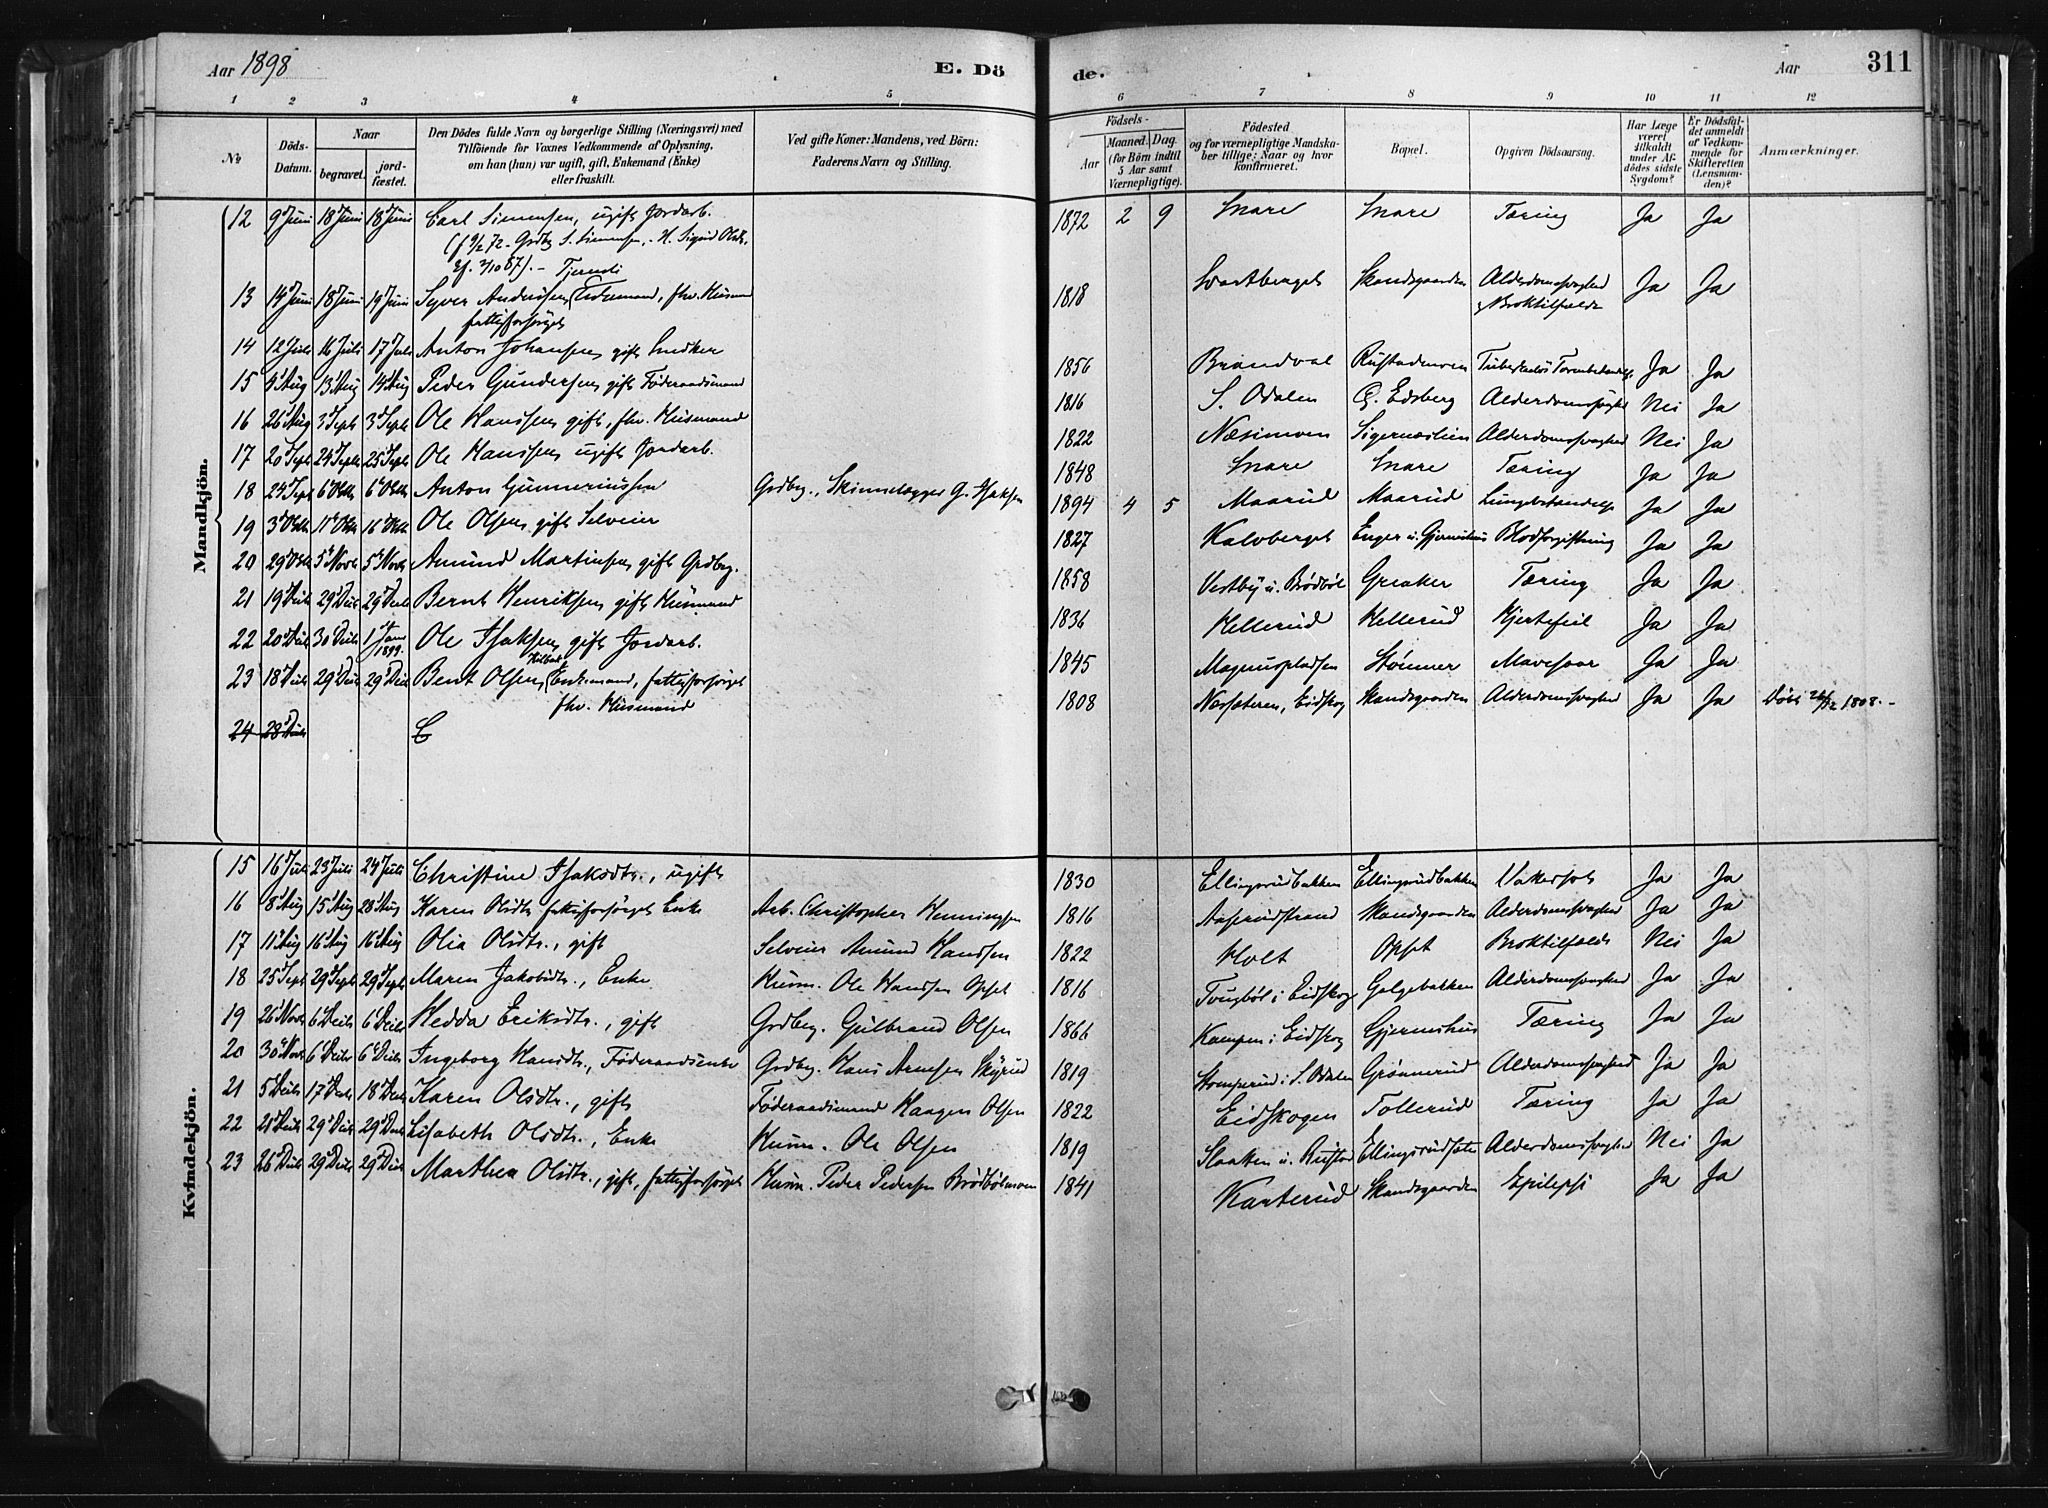 Aar 1898
E. Döde.
Aar
311
1 2 3 4 5 6 7 8 9 10 11 12
No.
Döds-Datum.
Naar
begravet.
jordfæstet.
Den Dödes fulde Navn og borgerlige Stilling (Næringsvei) med
Tilföiende for Voxnes Vedkommende af Oplysning,
om han (han) var ugift, gift, Enkemand (Enke)
eller fraskilt.
Ved gifte Koner: Mandens, ved Börn:
Faderens Navn og Stilling.
Födsels-
Aar
Maaned. Dag.
(for Börn indtil
5 Aar samt
Værnepligtige).
Födested
og for værnepligtige Mandskaber tillige: Naar og hvor
konfirmeret.
Bopæl.
Opgiven Dödsaarsag.
Har Læge været tilkaldt under Afdödes sidste Sygdom?
Er Dödsfaldet anmeldt af Vedkommende for Skifteretten (Lensmanden)?
Anmærkninger.
Mandkjön.
12 9 Juni 18 Juni 18 Juni Carl Simensen, ugift Jordarb. 1872 2 9 Snare Snare Tæring Ja Ja
(f 9/2 72. Grdbg S. Simensen, H. Sigrid Olsdtr.
13 14 Juni 18 Juni 19 Juni Syver Andersen Enkemand, fhv. Husmand 1818 Svartberget Skandsgaarden Alderdomssvaghed Broktilfælde Ja Ja
fattigforsörget
14 12 Juli 16 Juli 17 Juli Anton Johansen gift Snedker 1856 Brandval Rustadmoen Ja Ja
15 4 Aug 13 Aug 14 Aug Peder Gundersen gift Föderaadsmand 1816 S. Odalen Edsberg Alderdomssvaghed Nei Ja
16 26 Aug 3 Sept 3 Sept Ole Hanssen gift, fhv. Husmand 1822 Næsimoen Sigernæslien Alderdomssvaghed Nei Ja
17 20 Sept 24 Sept 25 Sept Ole Hanssen ugift Jordarb. 1848 Snare Snare Tæring Ja Ja
18 24 Sept 6 Oktb 6 Oktb Anton Gunneriussen Grdbrg., Skinnelægger G. Isaksen 1894 4 5 Maarud Maarud Lungebetændelse Ja Ja
19 3 Oktb 11 Oktb 16 Oktb Ole Olsen gift Selveier 1827 Kalvberget Enger u. Gjermshus Blodforgiftning Ja Ja
20 29 Oktb 5 Novb 5 Novb Amund Martinsen gift Grdbrg. 1858 Vestby u. Brödböl Greaker Tæring Ja Ja
21 19 Decb 29 Decb 29 Decb Bernt Henriksen gift Husmand 1836 Hellerud Hellerud Hjertefeil Ja Ja
22 20 Decb 30 Decb 1 Janr 1899. Ole Isaksen gift Jordarb. 1845 Magnuspladsen Stömner Mavesaar Ja Ja
23 18 Decb 29 Decb 29 Decb Bent Olsen, Enkemand, fattigforsörget 1808 Næssæteren, Eidskog Skandsgaarden Alderdomssvaghed Ja Ja Döbt 26/12 1808.
fhv. Husmand
24 28 Decb C
Kvindekjön.
15 16 Juli 23 Juli 24 Juli Christine Isaksdtr., ugift 1830 Ellingsrudbakken Ellingsrudbakken Vattersot Ja Ja
16 8 Aug 15 Aug 28 Aug Karen Olsdtr fattigforsörget Enke Arb. Christopher Henningsen 1816 Aaserudstrand Skandsgaarden Alderdomssvaghed Ja Ja
17 11 Aug 16 Aug 16 Aug Olia Olsdtr., gift Selveier Amund Hanssen 1822 Holt Opset Broktilfælde Nei Ja
18 25 Sept 29 Sept 29 Sept Maren Jakobsdtr., Enke Husm. Ole Hanssen Opset 1816 Tougböl i Eidskog Galgebakken Alderdomssvaghed Ja Ja
19 26 Novb 6 Decbr 6 Decbr Hedda Eriksdtr., gift Grdbrg. Gulbrand Olsen 1866 Kampen i Eidskog Gjermshus Tæring Ja Ja
20 30 Novb 6 Decbr 6 Decbr Ingeborg Hansdtr., Föderaadsenke Grdbrg. Hans Arnesen Skyrud 1819 Stomperud i S. Odalen Grönnerud Alderdomssvaghed Ja Ja
21 5 Decb 17 Decb 18 Decb Karen Olsdtr., gift Föderaadsmand Haagen Olsen 1822 Eidskogen Tollerud Tæring Ja Ja
22 21 Decb 29 Decb 29 Decb Lisabeth Olsdtr., Enke Husm. Ole Olsen 1819 Slaatten u. Rustad Ellingsrudsæter Alderdomssvaghed Nei Ja
23 26 Decb 29 Decb 29 Decb Marthea Olsdtr., gift, fattigforsörget Husm. Peder Pedersen Brödbölmoen 1841 Karterud Skandsgaarden Epilepsi Ja Ja